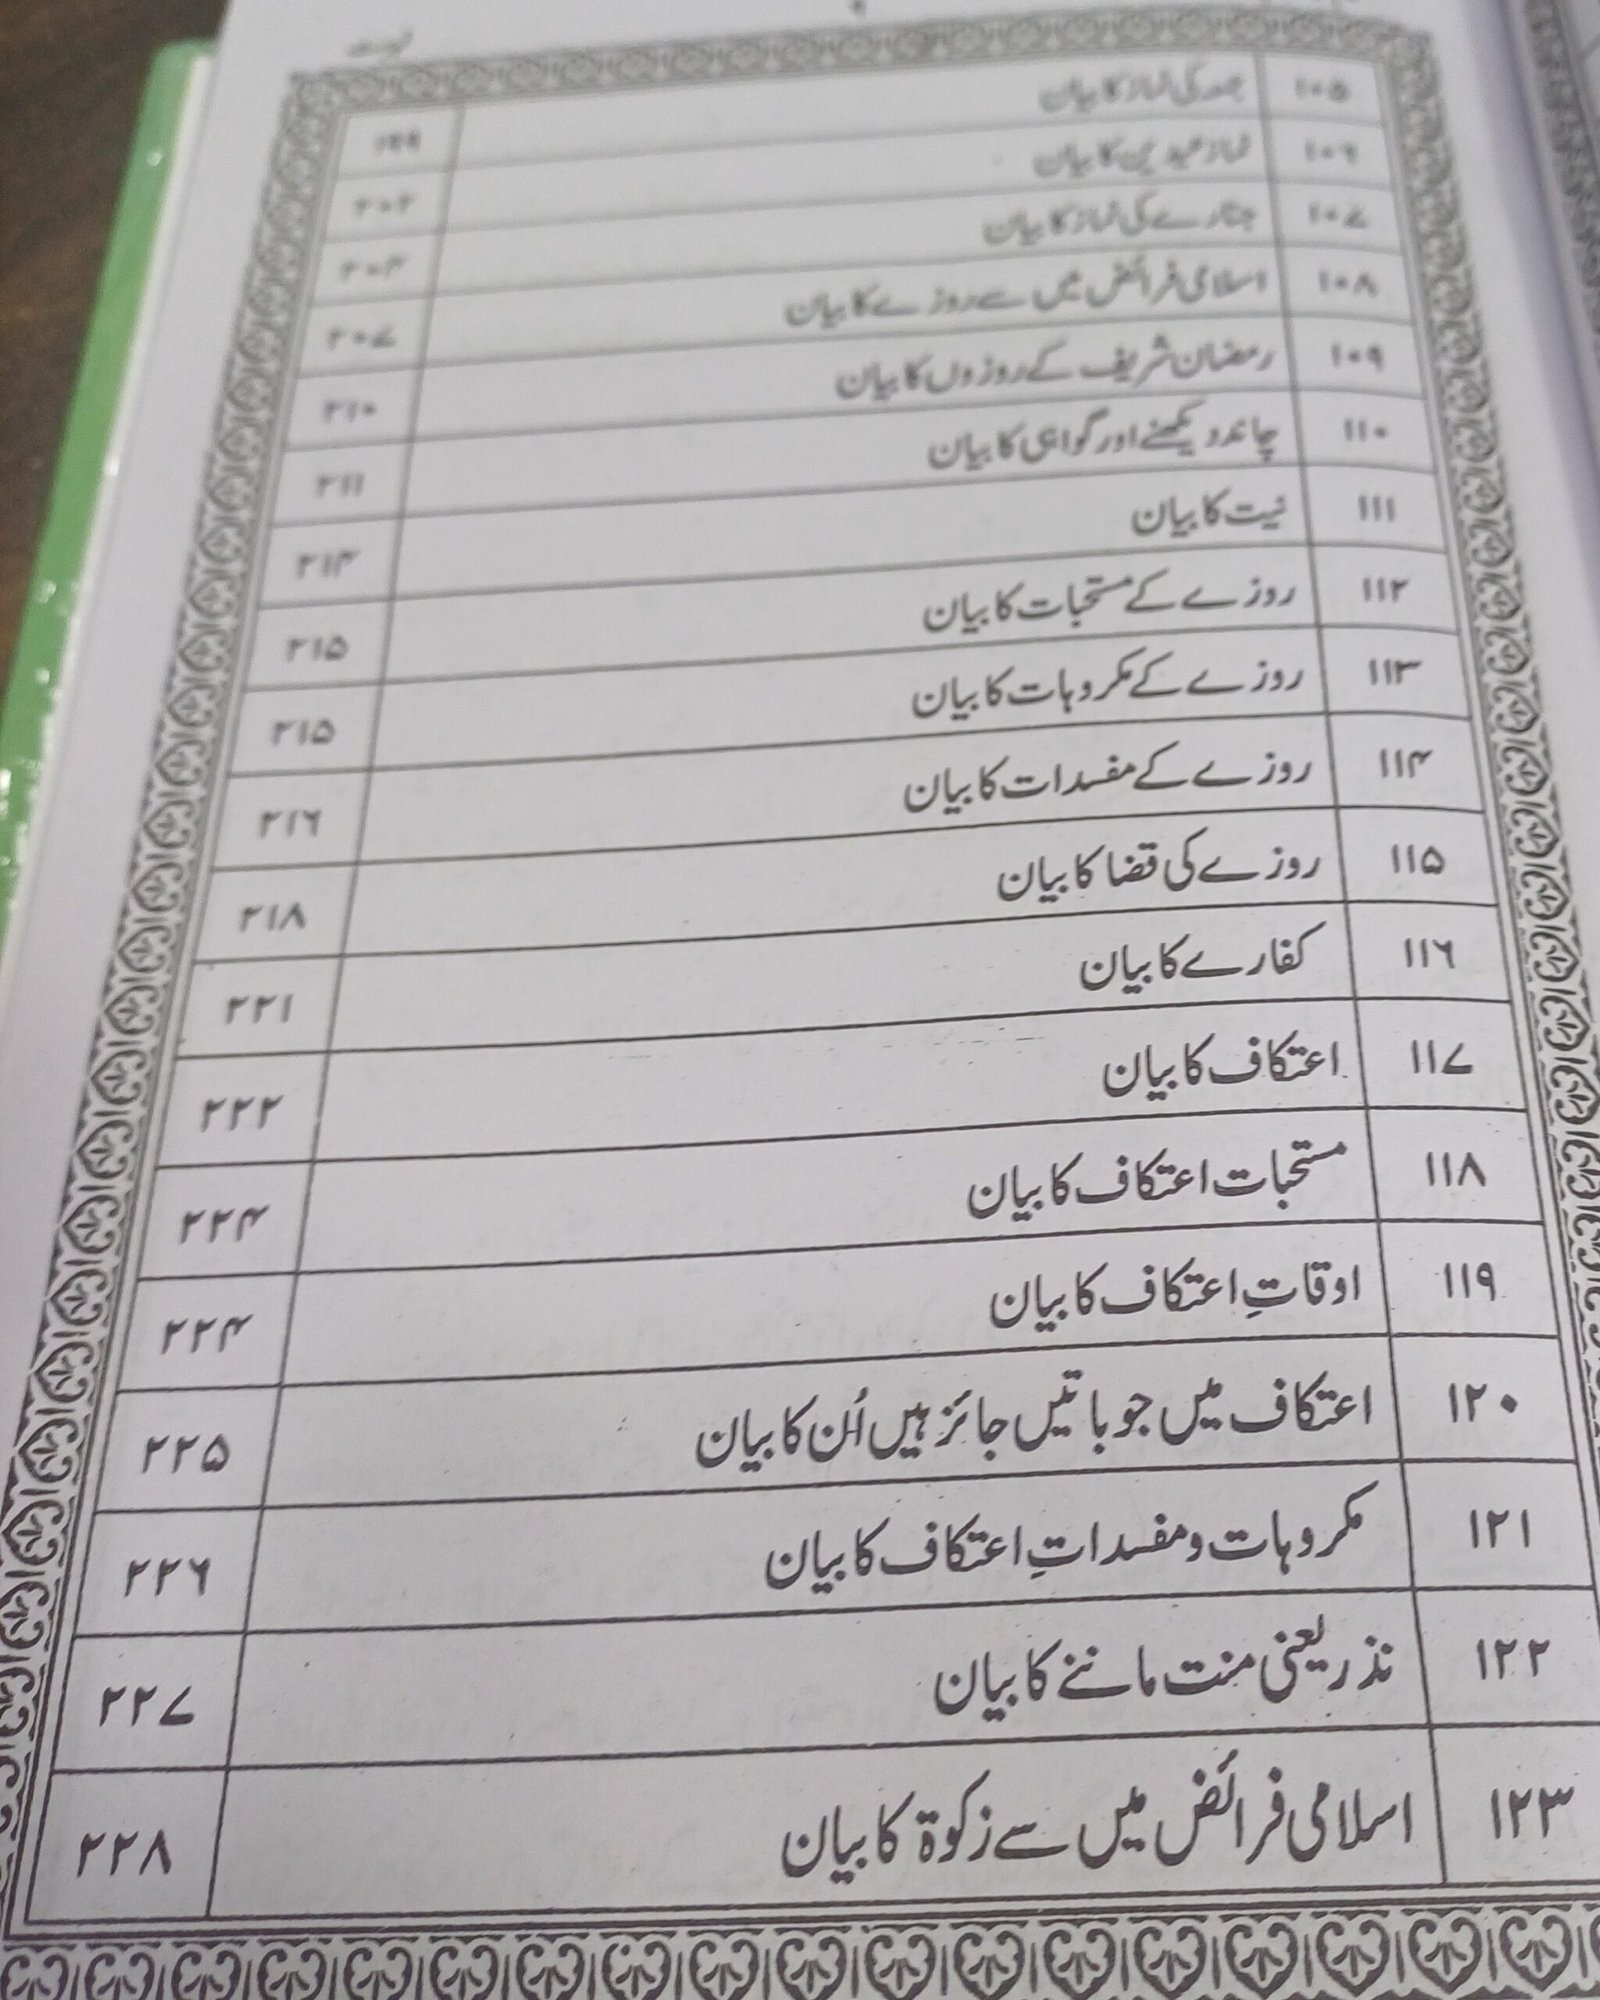 فہرست
۹
۱۰۵ جمعہ کی نماز کا بیان ۱۹۹
۱۰۶ نماز عیدین کا بیان ۲۰۲
۱۰۷ جنازے کی نماز کا بیان ۲۰۳
۱۰۸ اسلامی فرائض میں سے روزے کا بیان ۲۰۷
۱۰۹ رمضان شریف کے روزوں کا بیان ۲۱۰
۱۱۰ چاند دیکھنے اور گواہی کا بیان ۲۱۱
۱۱۱ نیت کا بیان ۲۱۳
۱۱۲ روزے کے مستحبات کا بیان ۲۱۵
۱۱۳ روزے کے مکروہات کا بیان ۲۱۵
۱۱۴ روزے کے مفسدات کا بیان ۲۱۶
۱۱۵ روزے کی قضا کا بیان ۲۱۸
۱۱۶ کفارے کا بیان ۲۲۱
۱۱۷ اعتکاف کا بیان ۲۲۲
۱۱۸ مستحبات اعتکاف کا بیان ۲۲۴
۱۱۹ اوقاتِ اعتکاف کا بیان ۲۲۴
۱۲۰ اعتکاف میں جو باتیں جائز ہیں اُن کا بیان ۲۲۵
۱۲۱ مکروہات و مفسداتِ اعتکاف کا بیان ۲۲۶
۱۲۲ نذر یعنی منت ماننے کا بیان ۲۲۷
۱۲۳ اسلامی فرائض میں سے زکوٰۃ کا بیان ۲۲۸